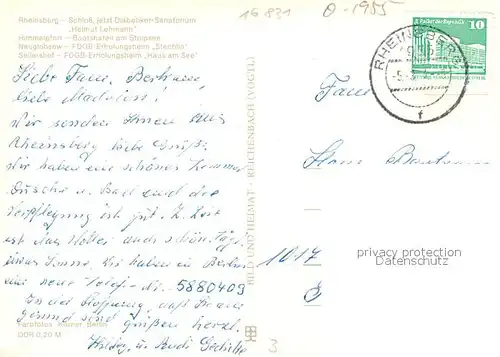 16 831
θ-1955
Rheinsberg – Schloß, jetzt Diabetiker-Sanatorium
„Helmut Lehmann"
Himmelpfort – Bootshafen am Stolpsee
Neuglobsow – FDGB-Erholungsheim „Stechlin"
Seilershof – FDGB-Erholungsheim „Haus am See"
Liebe Frau,
liebe
Wir senden Ihnen aus
Rheinsberg liebe Grüße.
Wir haben ein schönes Zimmer
Dusche u. Bad und die
Verpflegung ist gut. Z. Zeit
ist das Wetter auch schön,
Wir haben in Berlin
eine neue Telef.-Nr. 5880409
In der Hoffnung, daß
gesund sind grüßen herzl.
u. Rudi
Farbfotos Berlin
DDR 0,20 M
BILD UND HEIMAT · REICHENBACH (VOGTL)
RHEINSBERG
10
Frau
1017
privacy protection
Datenschutz
3